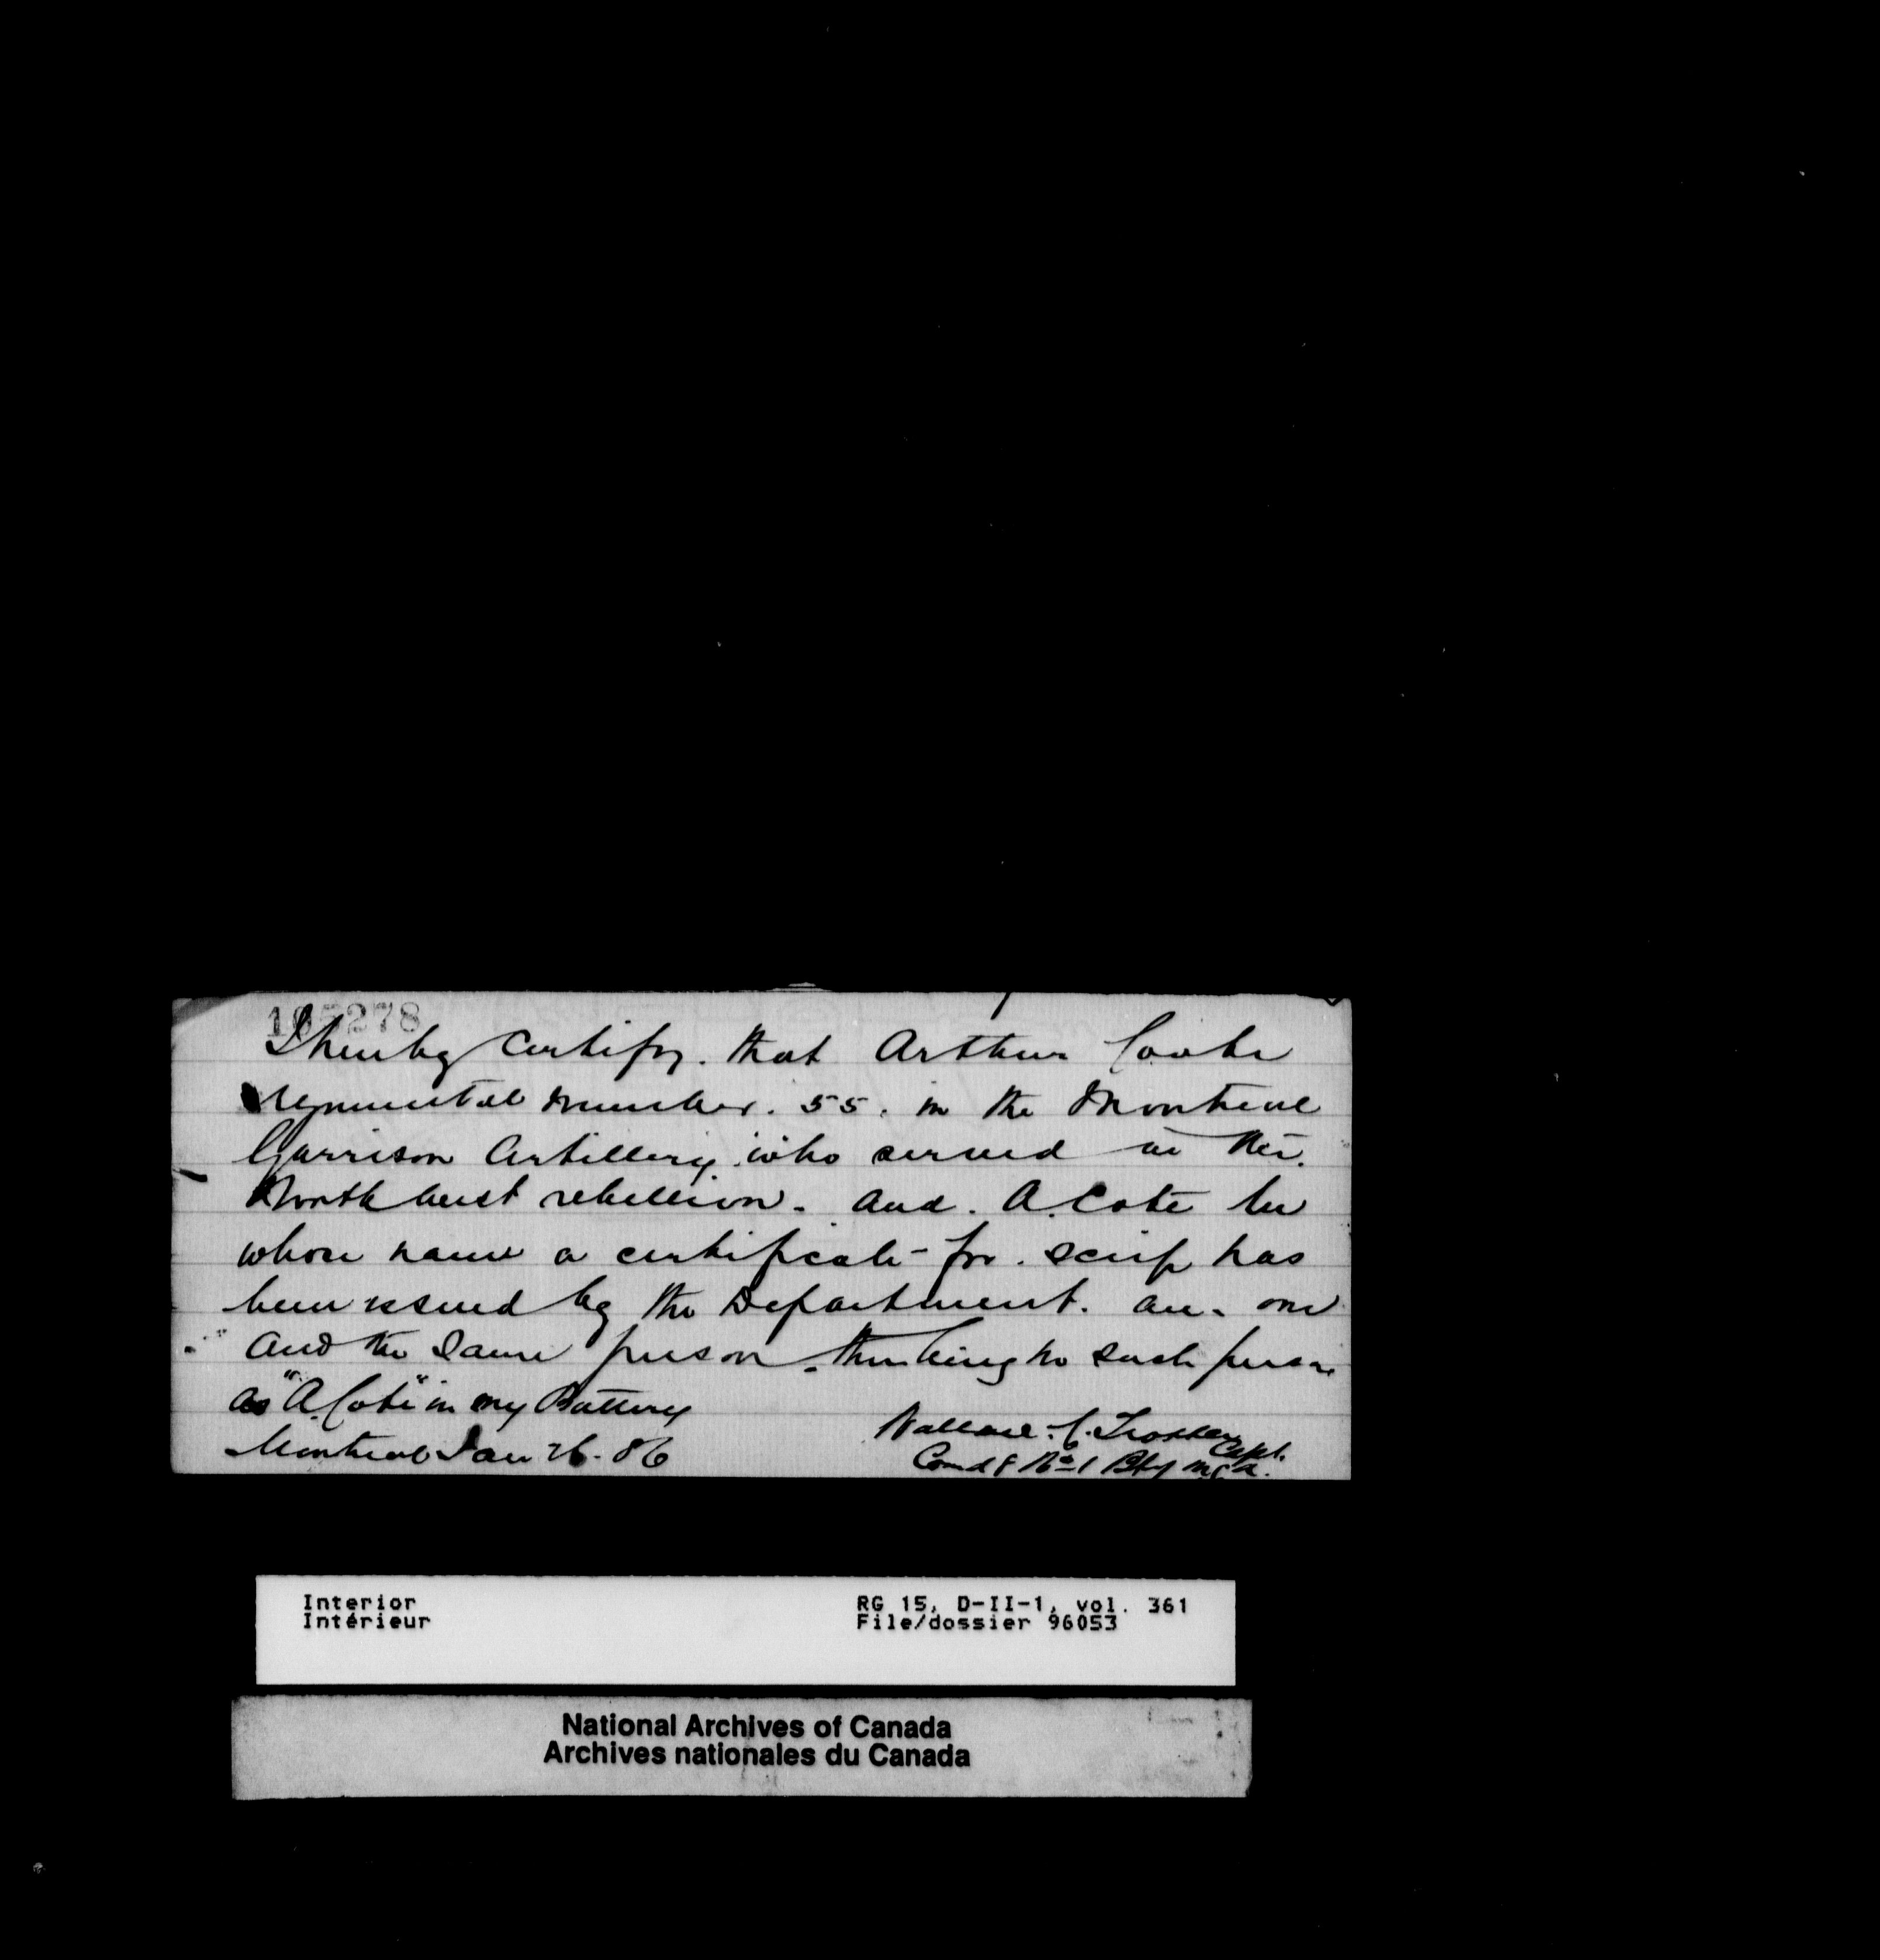 105278
I hereby certify. that Arthur Coote
regimental number. 55. in the Montreal
Garrison Artillery. who served in the.
North West rebellion. and. A. Cote in
whose name a certificate for. scrip has
been issued by the Department. are. one
and the same person. there being no such person
as "A. Cote" in my Battery
Montreal Jan 26. 86
Wallace. C. Trotter Capt.
Comdg No 1 Bty M.G.A.
Interior
Intérieur
RG 15, D-II-1, vol. 361
File/dossier 96053
National Archives of Canada
Archives nationales du Canada